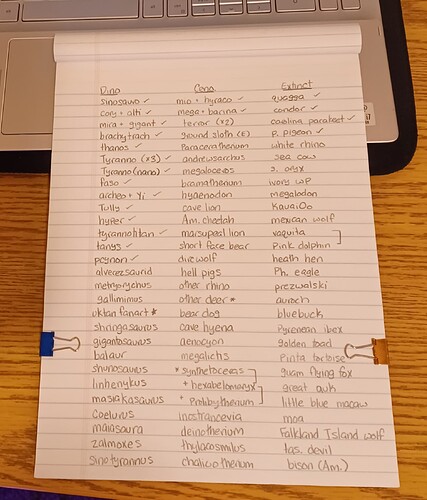 Dino Ceno Extinct
sinosauro ✓ mio + hyraco ✓ quagga ✓
cory + alti ✓ mega + barina ✓ condor ✓
mira + gigant ✓ terror (x2) carolina parakeet ✓
brachytrach ✓ ground sloth (E) p. pigeon ✓
thanos ✓ Paraceratherium white rhino
Tyranno (x3) ✓ andrewsarchus sea cow
Tyranno (nano) ✓ megaloceros s. oryx
Faso ✓ bramatherium ivory wp
archeo + Yi ✓ hyaenodon megalodon
Tully ✓ cave lion KauaiOo
hyper ✓ Am. cheetah mexican wolf
tyrannotitan ✓ marsupial lion vaquita
tanys ✓ short face bear Pink dolphin
pcynon ✓ dire wolf heath hen
alverezsaurid hell pigs Ph. eagle
metryorychus other rhino prezwalski
gallimimus other deer * auroch
uktan fanart * bear dog bluebuck
shringasaurus cave hyena Pyrenean ibex
gigantosaurus aenocyon golden toad
balaur megalichs Pinta tortoise
shunosaurus * synthetoceras guam flying fox
linhenykus + hexabelomeryx great auk
masiakasaurus + probbytherium little blue macaw
Coelurus inostrancevia moa
maiasaura deinotherium Falkland Island wolf
zalmoxes thylacosmilus tas. devil
sinotyrannus chalicotherium bison (Am.)